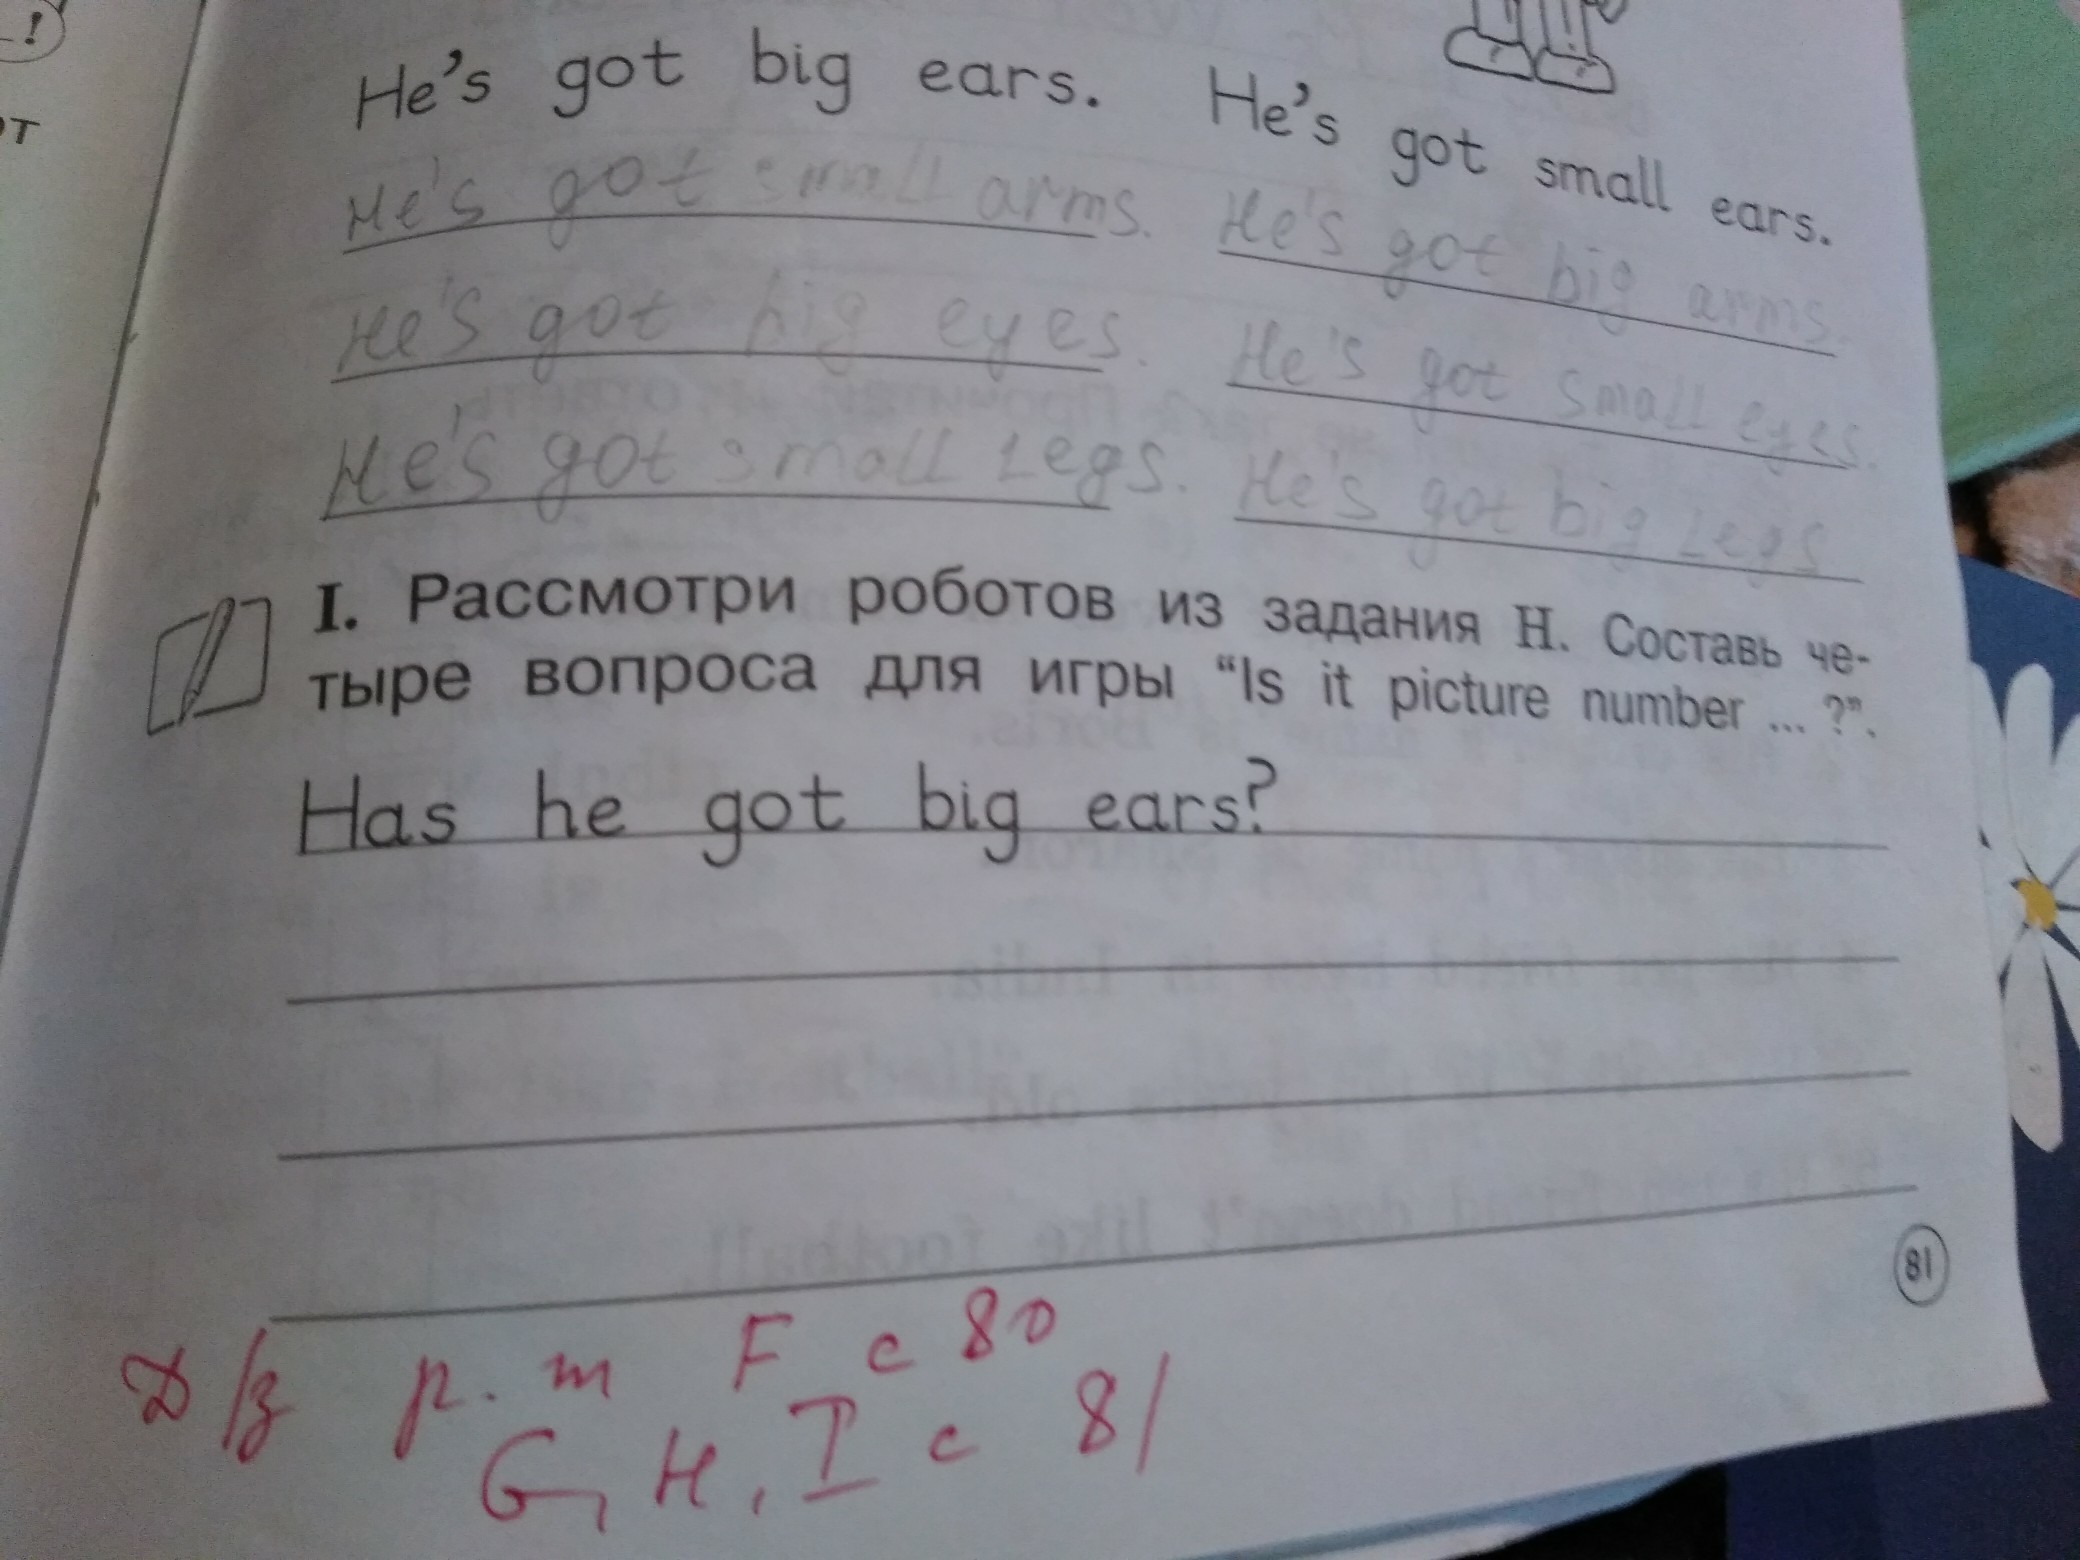 !
от
He's got big ears. He's got small ears.
He's got small arms. He's got big arms.
He's got big eyes. He's got small eyes.
He's got small Legs. He's got big Legs
I. Рассмотри роботов из задания H. Составь че-
тыре вопроса для игры “Is it picture number ... ?”.
Has he got big ears?
81
Д/з р. т F с 80
G, H, I с 81